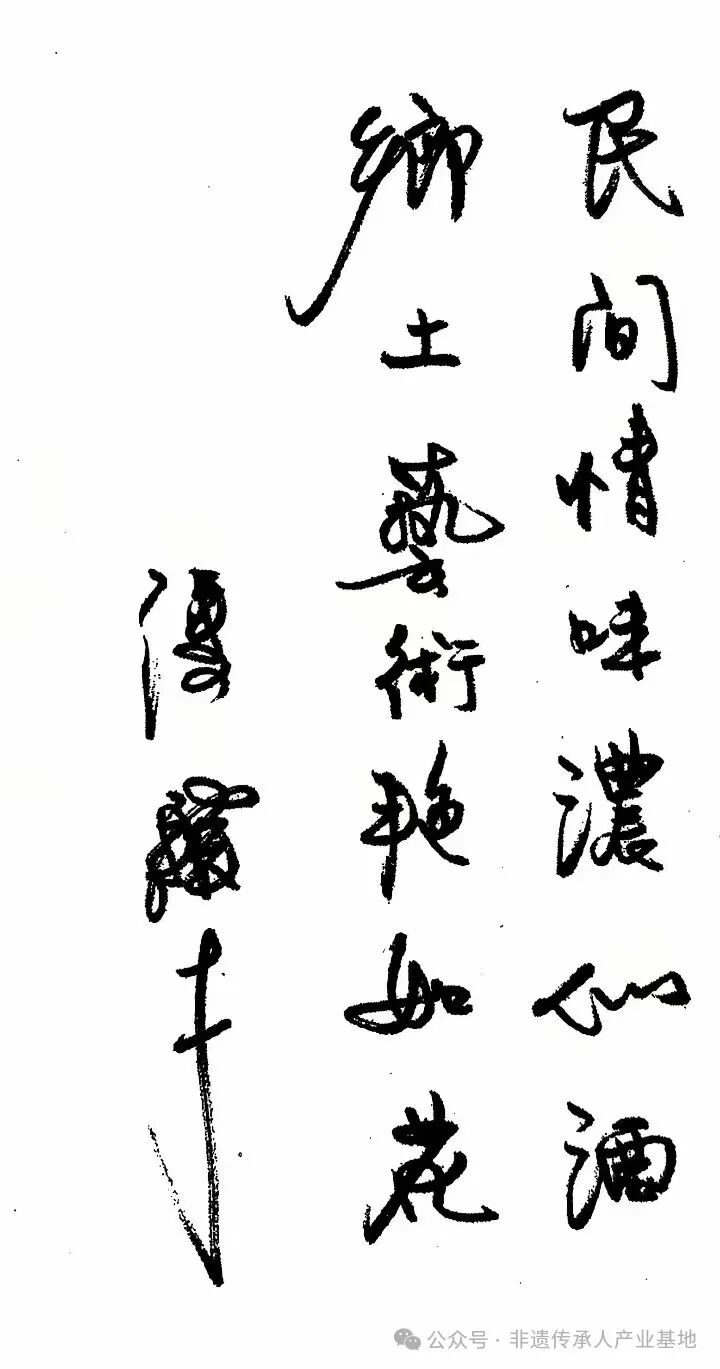 民间情味濃似酒
鄉土藝術艳如花
公众号 · 非遗传承人产业基地